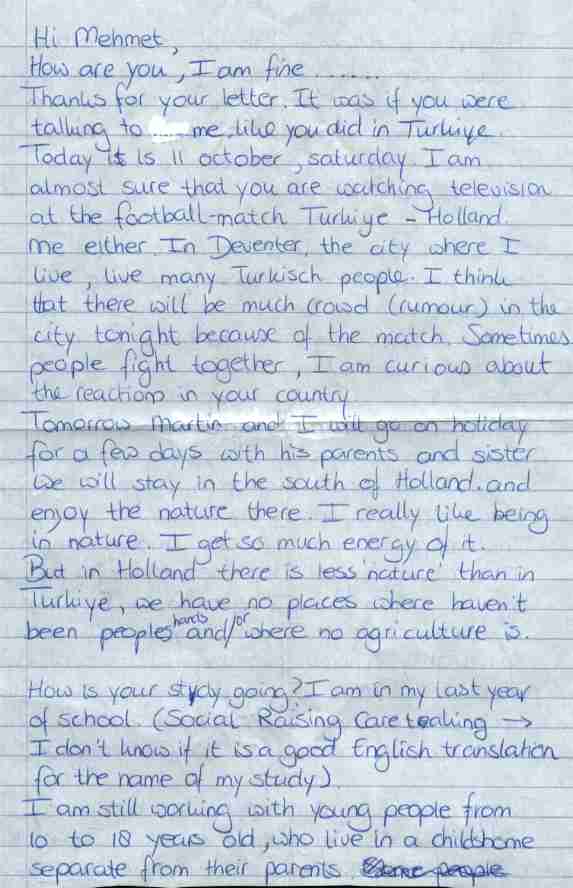 Hi Mehmet,
How are you, I am fine .......
Thanks for your letter. It was if you were
talking to me, like you did in Turkiye.
Today it is 11 october, saturday. I am
almost sure that you are watching television
at the football-match Turkiye - Holland.
me either. In Deventer, the city where I
live, live many Turkisch people. I think
that there will be much crowd (rumour) in the
city tonight because of the match. Sometimes
people fight together, I am curious about
the reactions in your country.
Tomorrow Martin and I will go on holiday
for a few days with his parents and sister
we will stay in the south of Holland. and
enjoy the nature there. I really like being
in nature. I get so much energy of it.
But in Holland there is less 'nature' than in
Turkiye, we have no places where haven't
been peoples hands and/or where no agriculture is.
How is your study going? I am in my last year
of school. (Social Raising Caretaking →
I don't know if it is a good English translation
for the name of my study).
I am still working with young people from
10 to 18 years old, who live in a childshome
separate from their parents. Some people